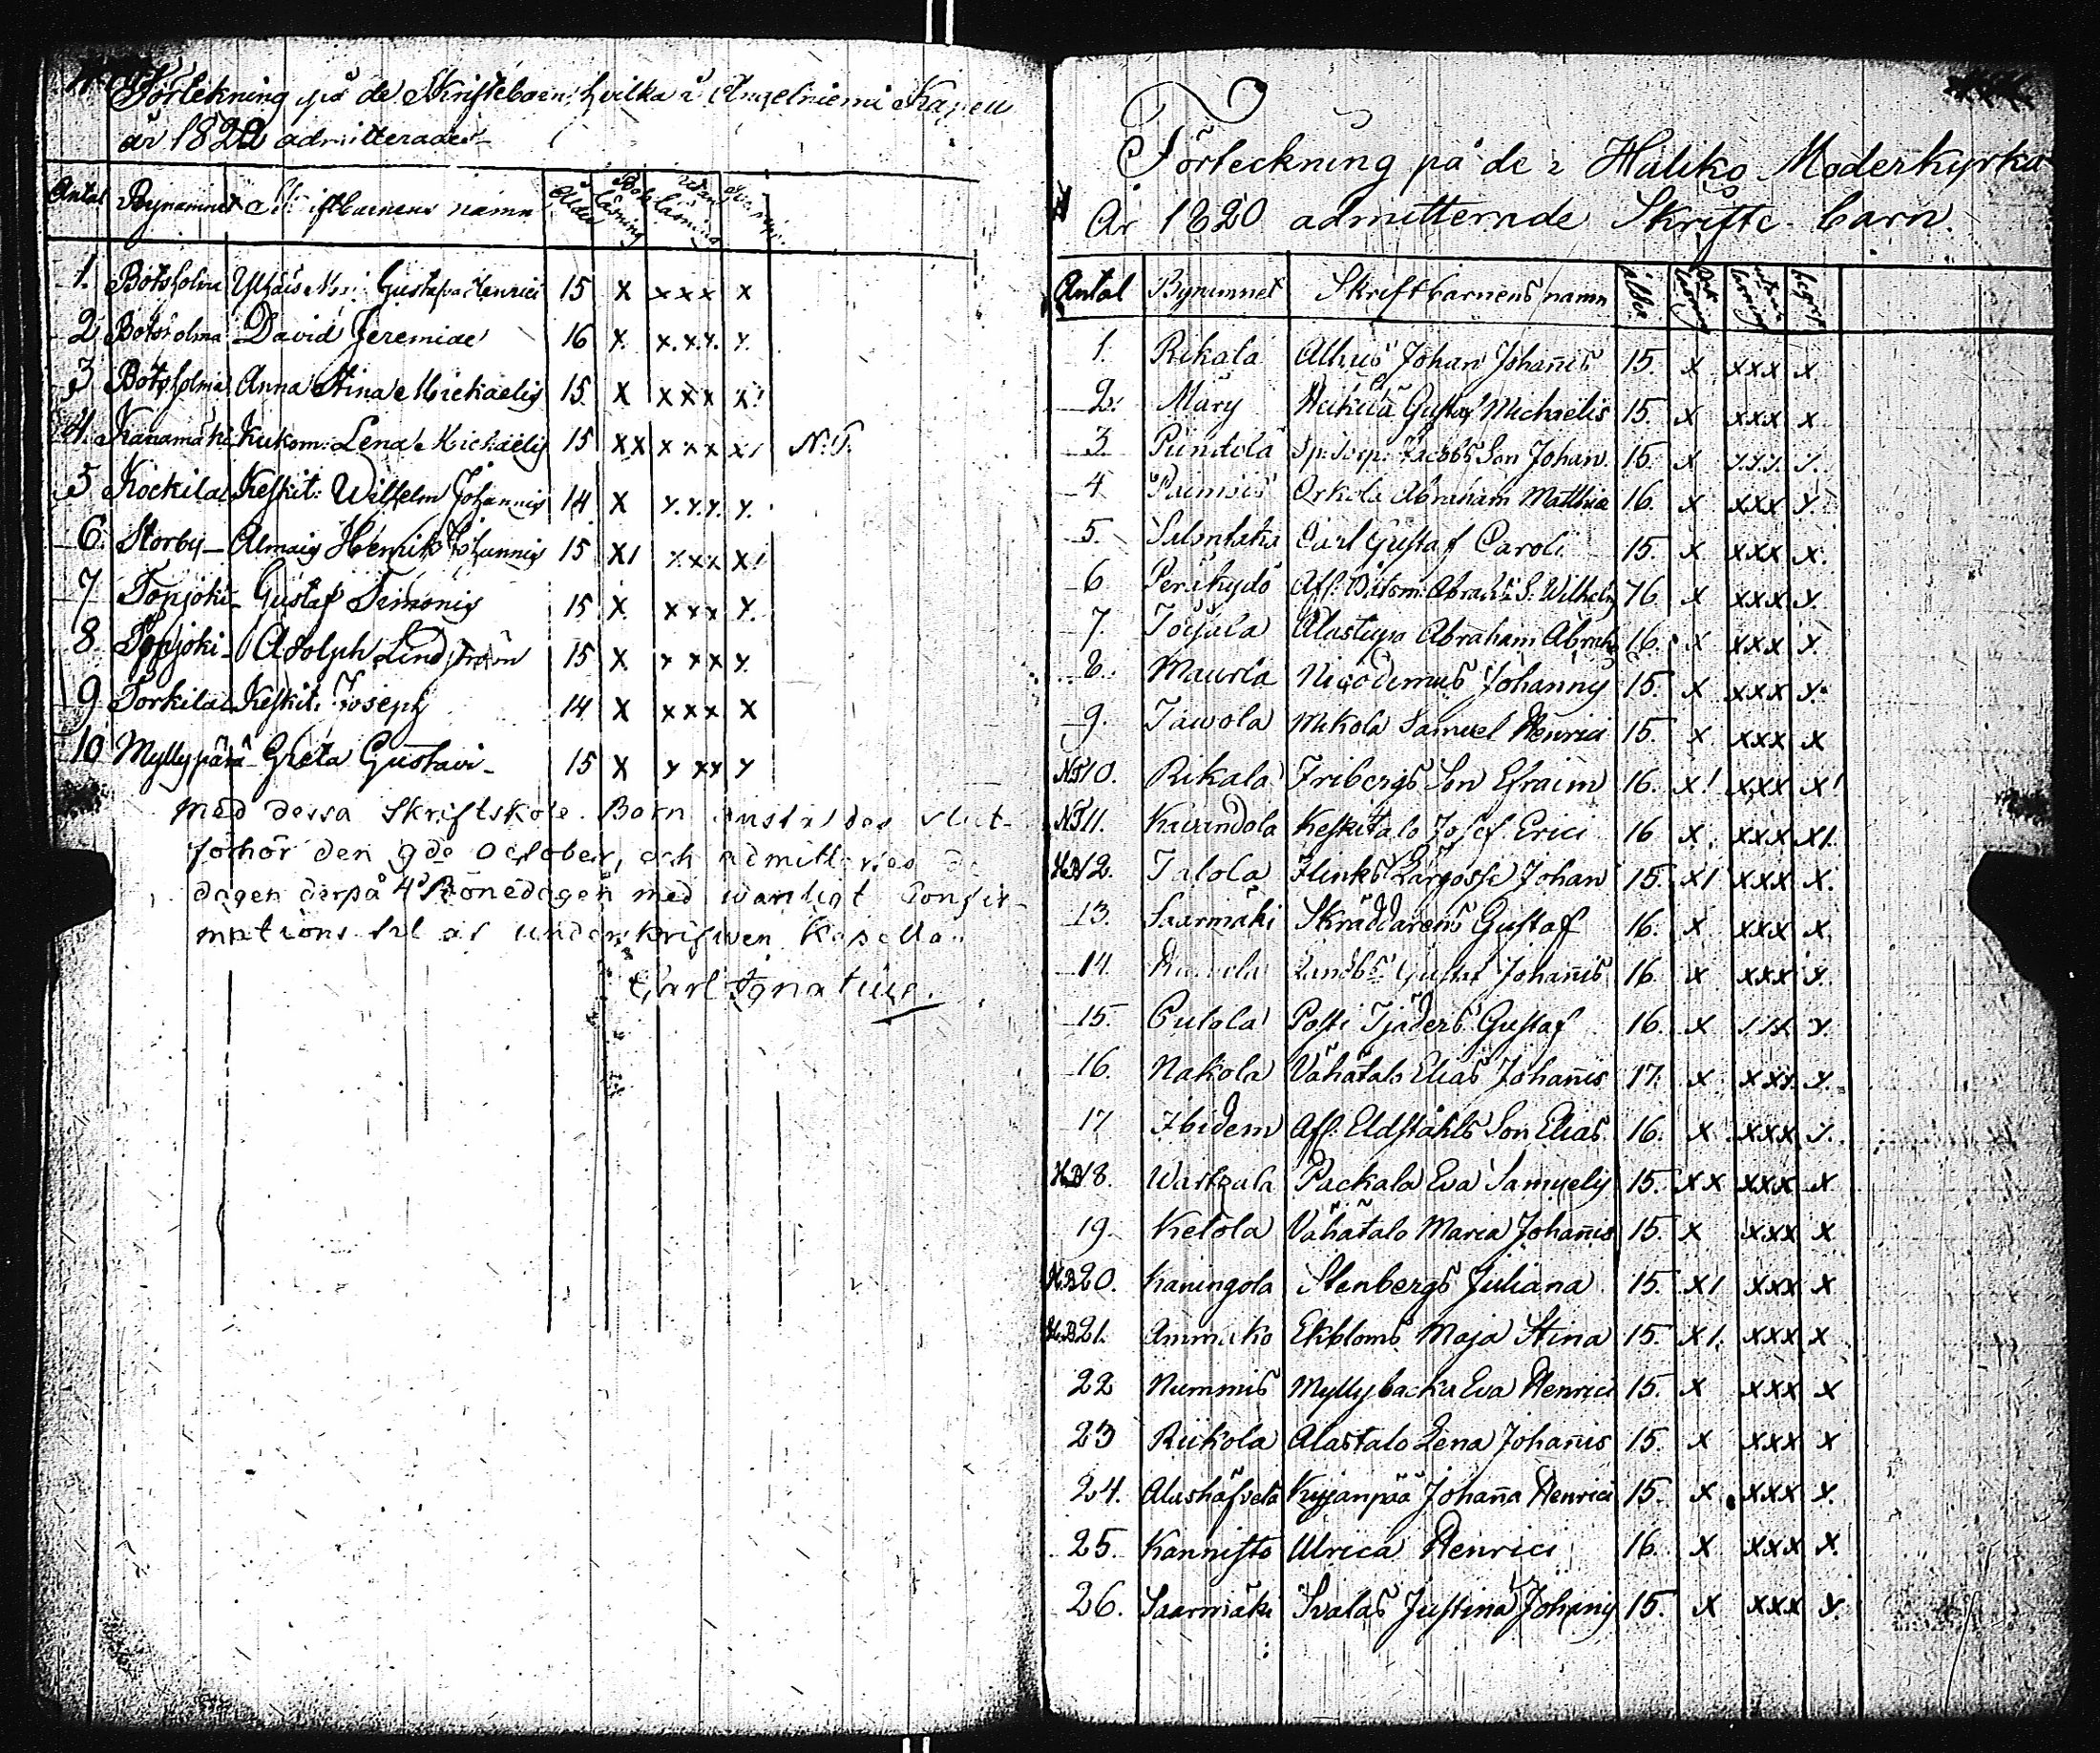 Förtekning på de Skriftebarn, hvilka i Angelniemi Kapell
år 1820 admitterades
Antal Bynamnet Skriftbarnens namn Ålder Bok läsning utan läsning
1. Botsholma Gustafva Henrici 15 x xxx x
2 Botsholma David Jeremiae 16 x. x.x.x. x.
3 Botsholma Anna Stina Michaelis 15. x xxx x!
4. Kanamäki Kukom: Lena Michaelis 15 xx xxx x! N.T.
5 Kockila Keskit: Wilhelm Johannis 14 x x.x.x. x.
6. Storby Almais Henrik Johannis 15 x! xxx x!
7 Topjoki Gustaf Simonis 15 x. xxx x.
8. Topjoki Adolph Lindström 15 x xxx x.
9 Torkila Keskit: Joseph 14 x xxx x
10 Myllyperä Greta Gustavi 15 x xxx x
Med dessa Skriftskole Barn anstäldes slut-
förhör den 9de October, och admitterades de
dagen derpå 4de Bönedagen med wanligt Confir-
mations af underskrifwen Kapellan
Carl Ignatius.
Förteckning på de i Haliko Moderkyrka
År 1820 admitternde Skrifte barn.
Antal Bynamnet Skriftbarnens namn ålder Bok läsning utan läsning begrip
1. Rikala Johan Johañis 15. x xxx x
2. Märy Heikilä Gustaf Michaelis 15. x xxx x
3. Puntola Jacobs Son Johan. 15. x x.x.x. x.
4 Paimois Orkola Abraham Matthiae 16. x xxx x.
5. Salontaka Carl Gustaf Caroli 15. x xxx x.
6 Peräkydö Afl. Båtsm. Abrah: S. Wilhelm 16 x xxx x.
7. Töijala Alastupa Abraham Abrah 16. x xxx x.
8. Maurla Nicodemus Johannis 15. x xxx x.
9. Tawola Mikola Samuel Henrici 15. x xxx x
NB10. Rikala Fribergs Son Efraim 16. x! xxx x!
NB11. Kaivandola Keskitalo Josef Erici 16 x. xxx x!.
NB12. Talola Flinks Johan 15. x! xxx x.
13. Saarmäki Skräddarens Gustaf 16. x xxx x
14. Gustaf Johañis 16. x xxx x.
15. Putola Posti Tjäders Gustaf 16. x xxx x.
16. Nakola Vähätalo Elias Johañis 17. x xxx. x.
17 Ibidem Afl. Eldståhls Son Elias 16. x xxx x.
NB18. Wartsala Packala Eva Samuelis 15. xx xxx x
19. Ketola Vähätalo Maria Johañis 15. x xxx x
NB20. Kaningola Stenbergs Juliana 15. x! xxx x
NB21. Ammako Ekbloms Maja Stina 15. x!. xxx x
22 Nummis Myllybacka Eva Henrici 15. x xxx x
23 Riikola Alastalo Lena Johañis 15. x xxx x
24. Johaña Henrici 15. x xxx x.
25. Kannisto Ulrica Henrici 16. x xxx x.
26. Saarmäki Svalas Justina Johañis 15. x xxx x.